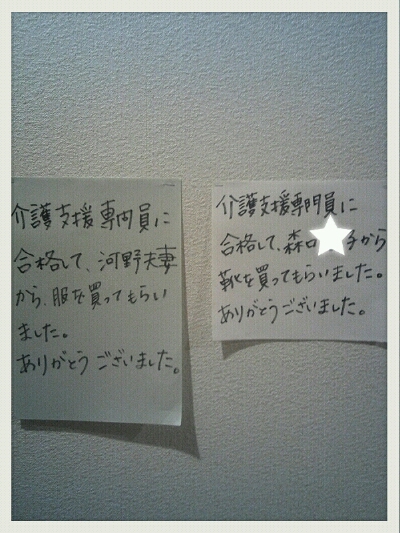 介護支援専門員に
合格して、河野夫妻
から、服を買ってもらい
ました。
ありがとうございました。
介護支援専門員に
合格して、森口 子から
靴を買ってもらいました。
ありがとうございました。